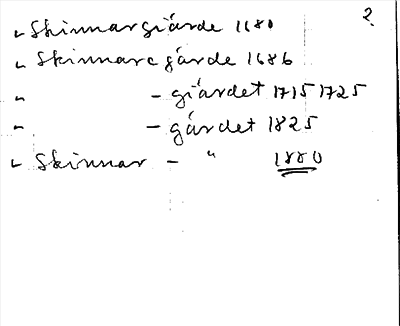 2.
" Skinnargiärde 1680
" Skinnare gärde 1686
" - giärdet 1715 1725
" - gärdet 1825
" Skinnar - " 1880